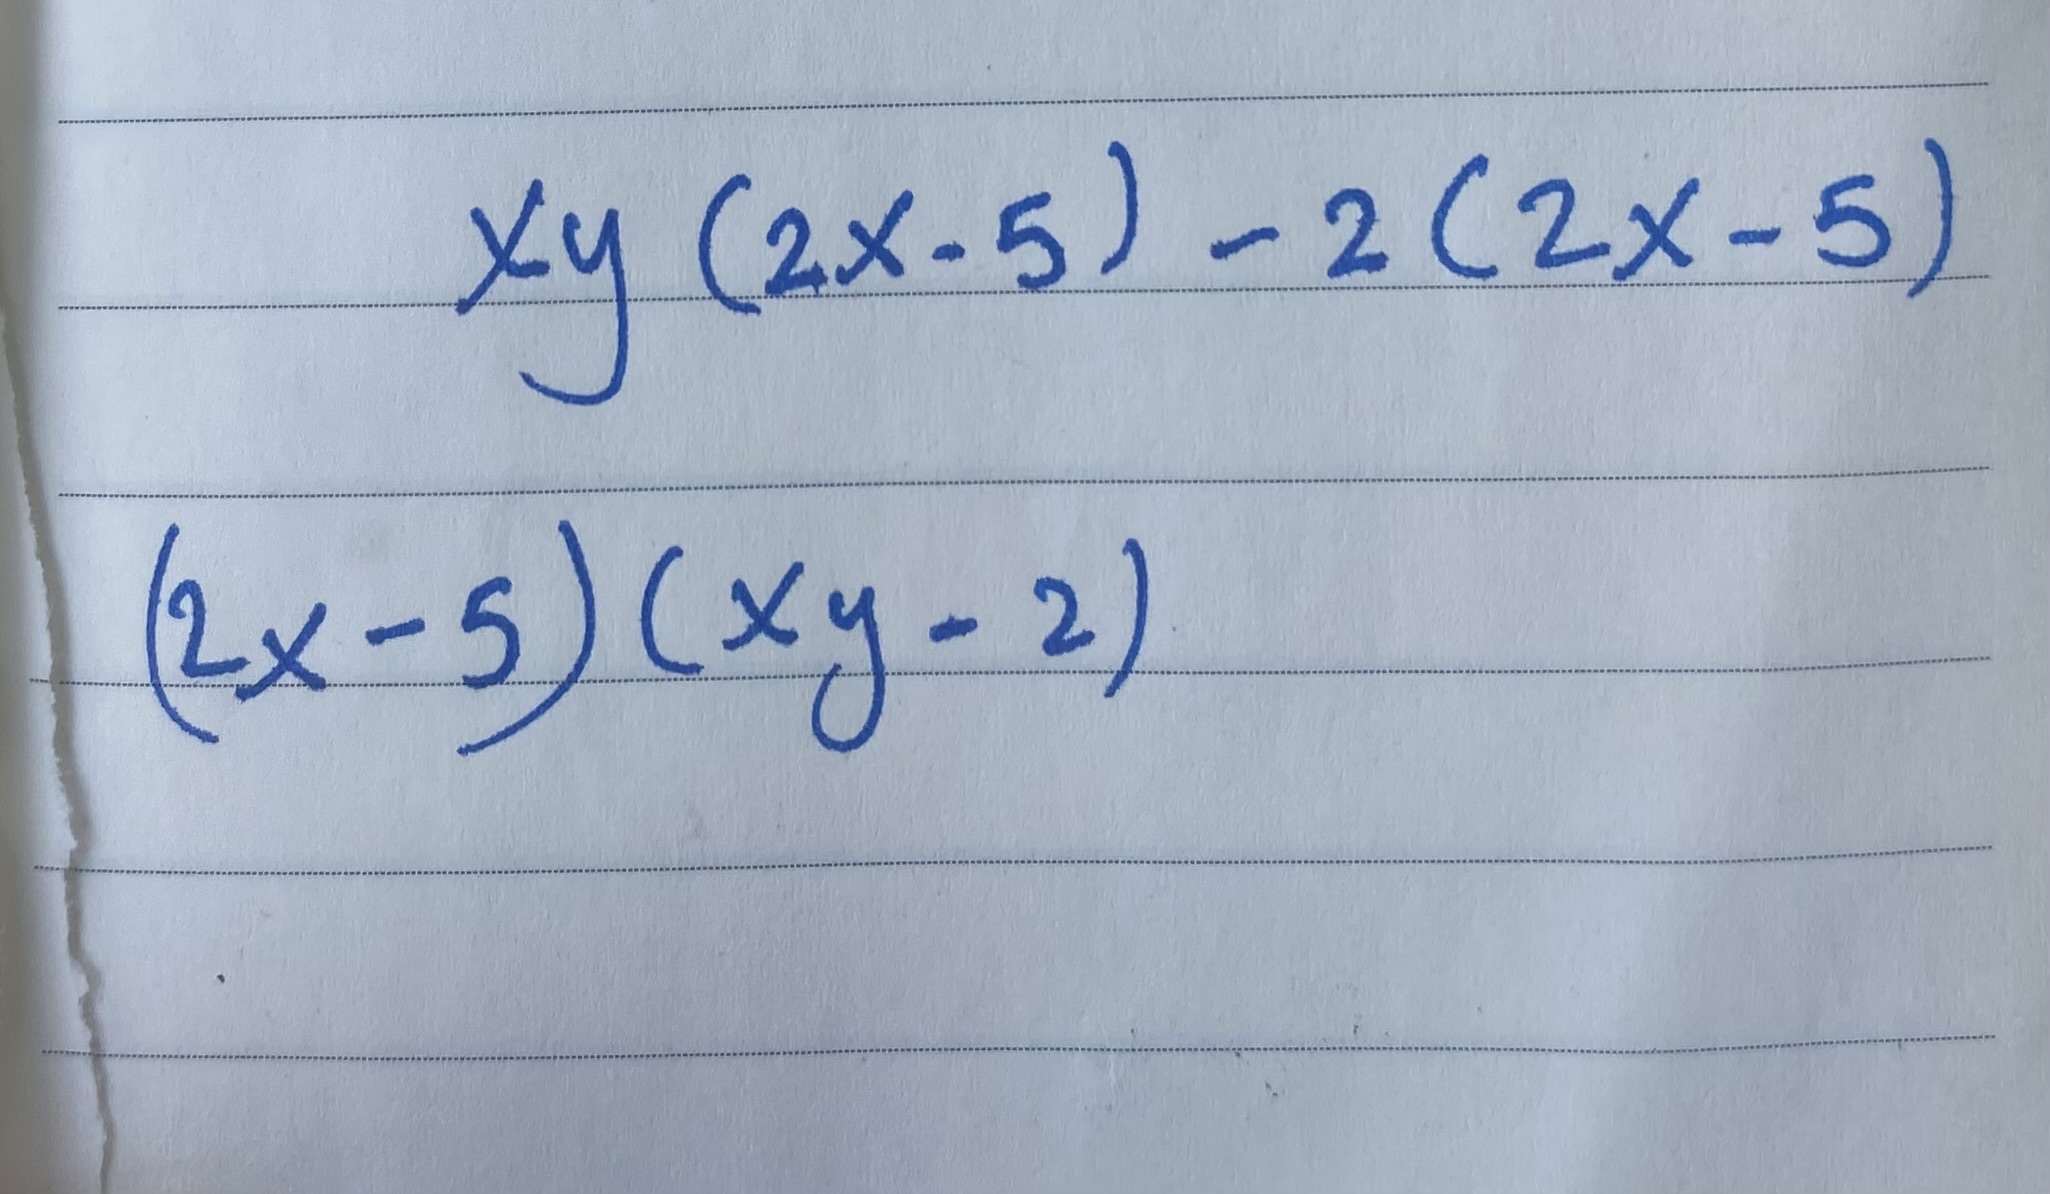 xy (2x-5) - 2 (2x-5)
(2x-5) (xy-2)